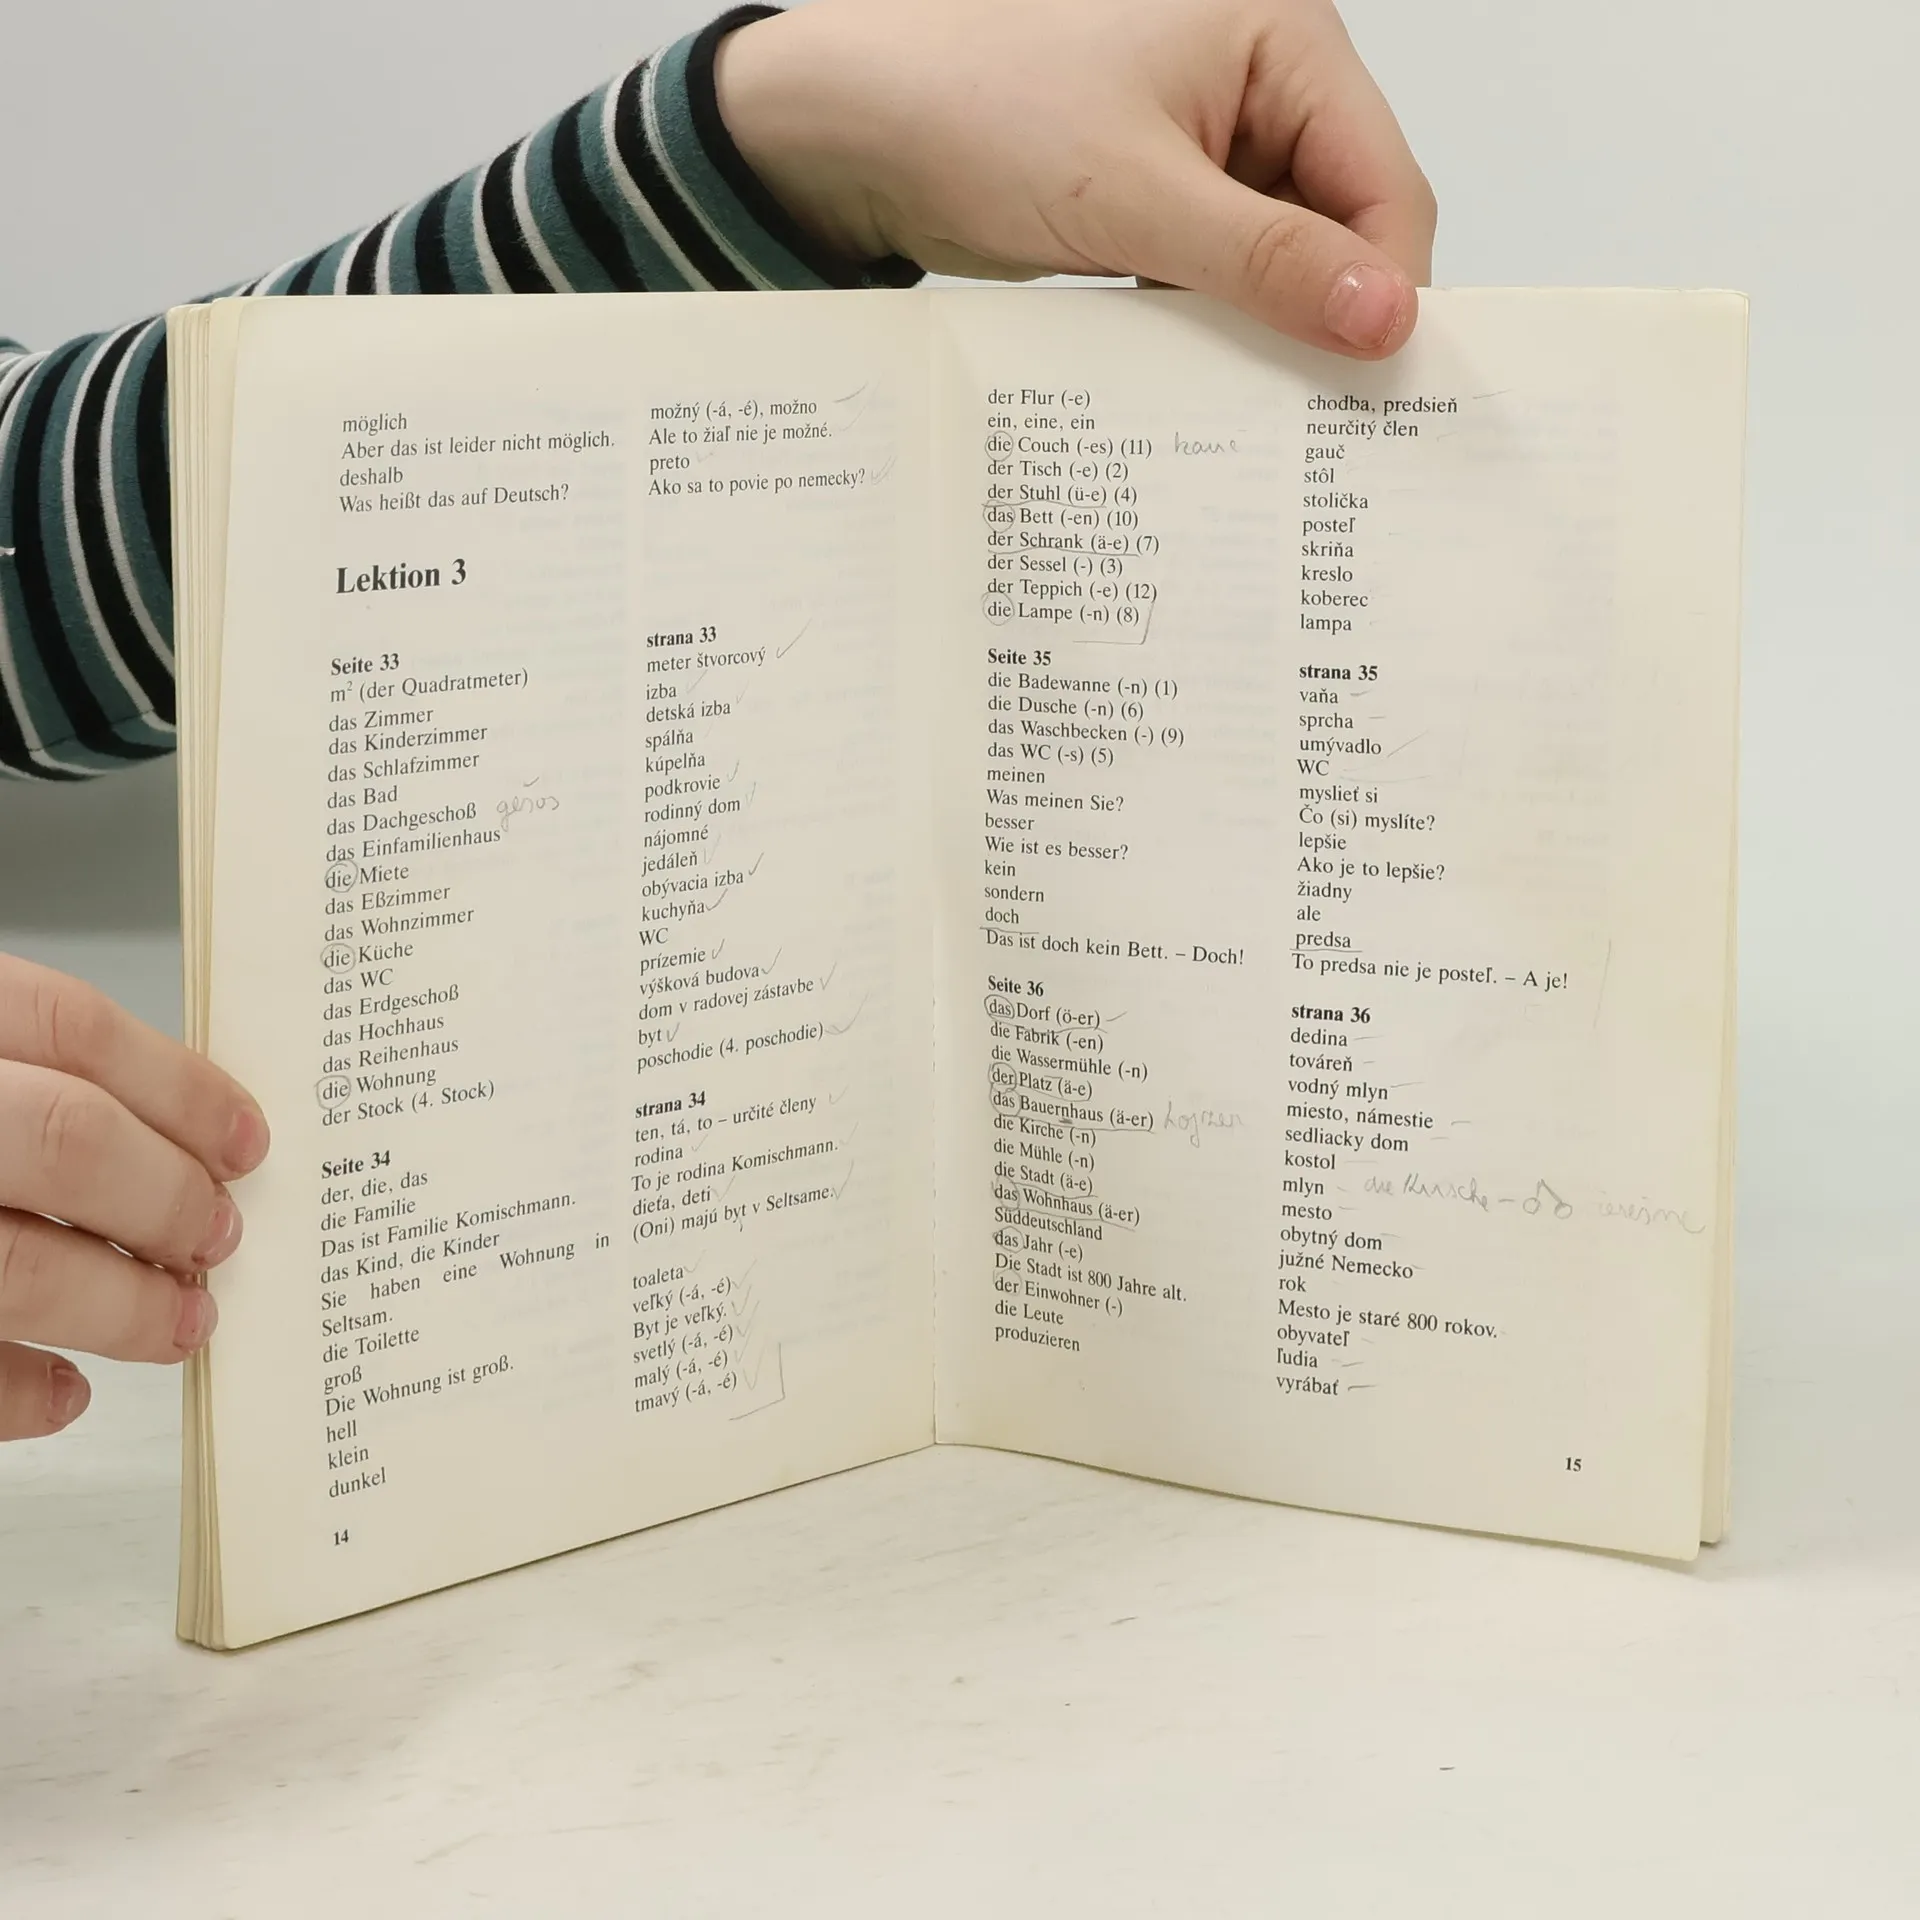 möglich
Aber das ist leider nicht möglich.
deshalb
Was heißt das auf Deutsch?
možný (-á, -é), možno
Ale to žiaľ nie je možné.
preto
Ako sa to povie po nemecky?
Lektion 3
Seite 33
m² (der Quadratmeter)
das Zimmer
das Kinderzimmer
das Schlafzimmer
das Bad
das Dachgeschoß gešos
das Einfamilienhaus
die Miete
das Eßzimmer
das Wohnzimmer
die Küche
das WC
das Erdgeschoß
das Hochhaus
das Reihenhaus
die Wohnung
der Stock (4. Stock)
strana 33
meter štvorcový
izba
detská izba
spálňa
kúpelňa
podkrovie
rodinný dom
nájomné
jedáleň
obývacia izba
kuchyňa
WC
prízemie
výšková budova
dom v radovej zástavbe
byt
poschodie (4. poschodie)
Seite 34
der, die, das
die Familie
Das ist Familie Komischmann.
das Kind, die Kinder
Sie haben eine Wohnung in
Seltsam.
die Toilette
groß
Die Wohnung ist groß.
hell
klein
dunkel
strana 34
ten, tá, to – určité členy
rodina
To je rodina Komischmann.
dieťa, deti
(Oni) majú byt v Seltsame.
toaleta
veľký (-á, -é)
Byt je veľký.
svetlý (-á, -é)
malý (-á, -é)
tmavý (-á, -é)
14
der Flur (-e)
ein, eine, ein
die Couch (-es) (11)
der Tisch (-e) (2)
der Stuhl (ü-e) (4)
das Bett (-en) (10)
der Schrank (ä-e) (7)
der Sessel (-) (3)
der Teppich (-e) (12)
die Lampe (-n) (8)
chodba, predsieň
neurčitý člen
gauč
stôl
stolička
posteľ
skriňa
kreslo
koberec
lampa
Seite 35
die Badewanne (-n) (1)
die Dusche (-n) (6)
das Waschbecken (-) (9)
das WC (-s) (5)
meinen
Was meinen Sie?
besser
Wie ist es besser?
kein
sondern
doch
Das ist doch kein Bett. – Doch!
strana 35
vaňa
sprcha
umývadlo
WC
myslieť si
Čo (si) myslíte?
lepšie
Ako je to lepšie?
žiadny
ale
predsa
To predsa nie je posteľ. – A je!
Seite 36
das Dorf (ö-er)
die Fabrik (-en)
die Wassermühle (-n)
der Platz (ä-e)
das Bauernhaus (ä-er)
die Kirche (-n)
die Mühle (-n)
die Stadt (ä-e)
das Wohnhaus (ä-er)
Süddeutschland
das Jahr (-e)
Die Stadt ist 800 Jahre alt.
der Einwohner (-)
die Leute
produzieren
strana 36
dedina
továreň
vodný mlyn
miesto, námestie
sedliacky dom
kostol
mlyn
mesto
obytný dom
južné Nemecko
rok
Mesto je staré 800 rokov.
obyvateľ
ľudia
vyrábať
15